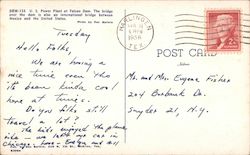 DRW-133 U. S. Power Plant at Falcon Dam. The bridge
over the dam is also an international bridge between
Mexico and the United States.
HARLINGEN
1956
TEX.
Tuesday
Hello Folks,
We are having a
nice time even tho
its been kinda cool
here at times.
Do you Folks still
travel a lot?
The kids enjoyed the plane
ride - we left my car in
POST CARD
Mr. and Mrs Eugene Fisher
204 Burbank Dr.
Snyder 21, N.Y.